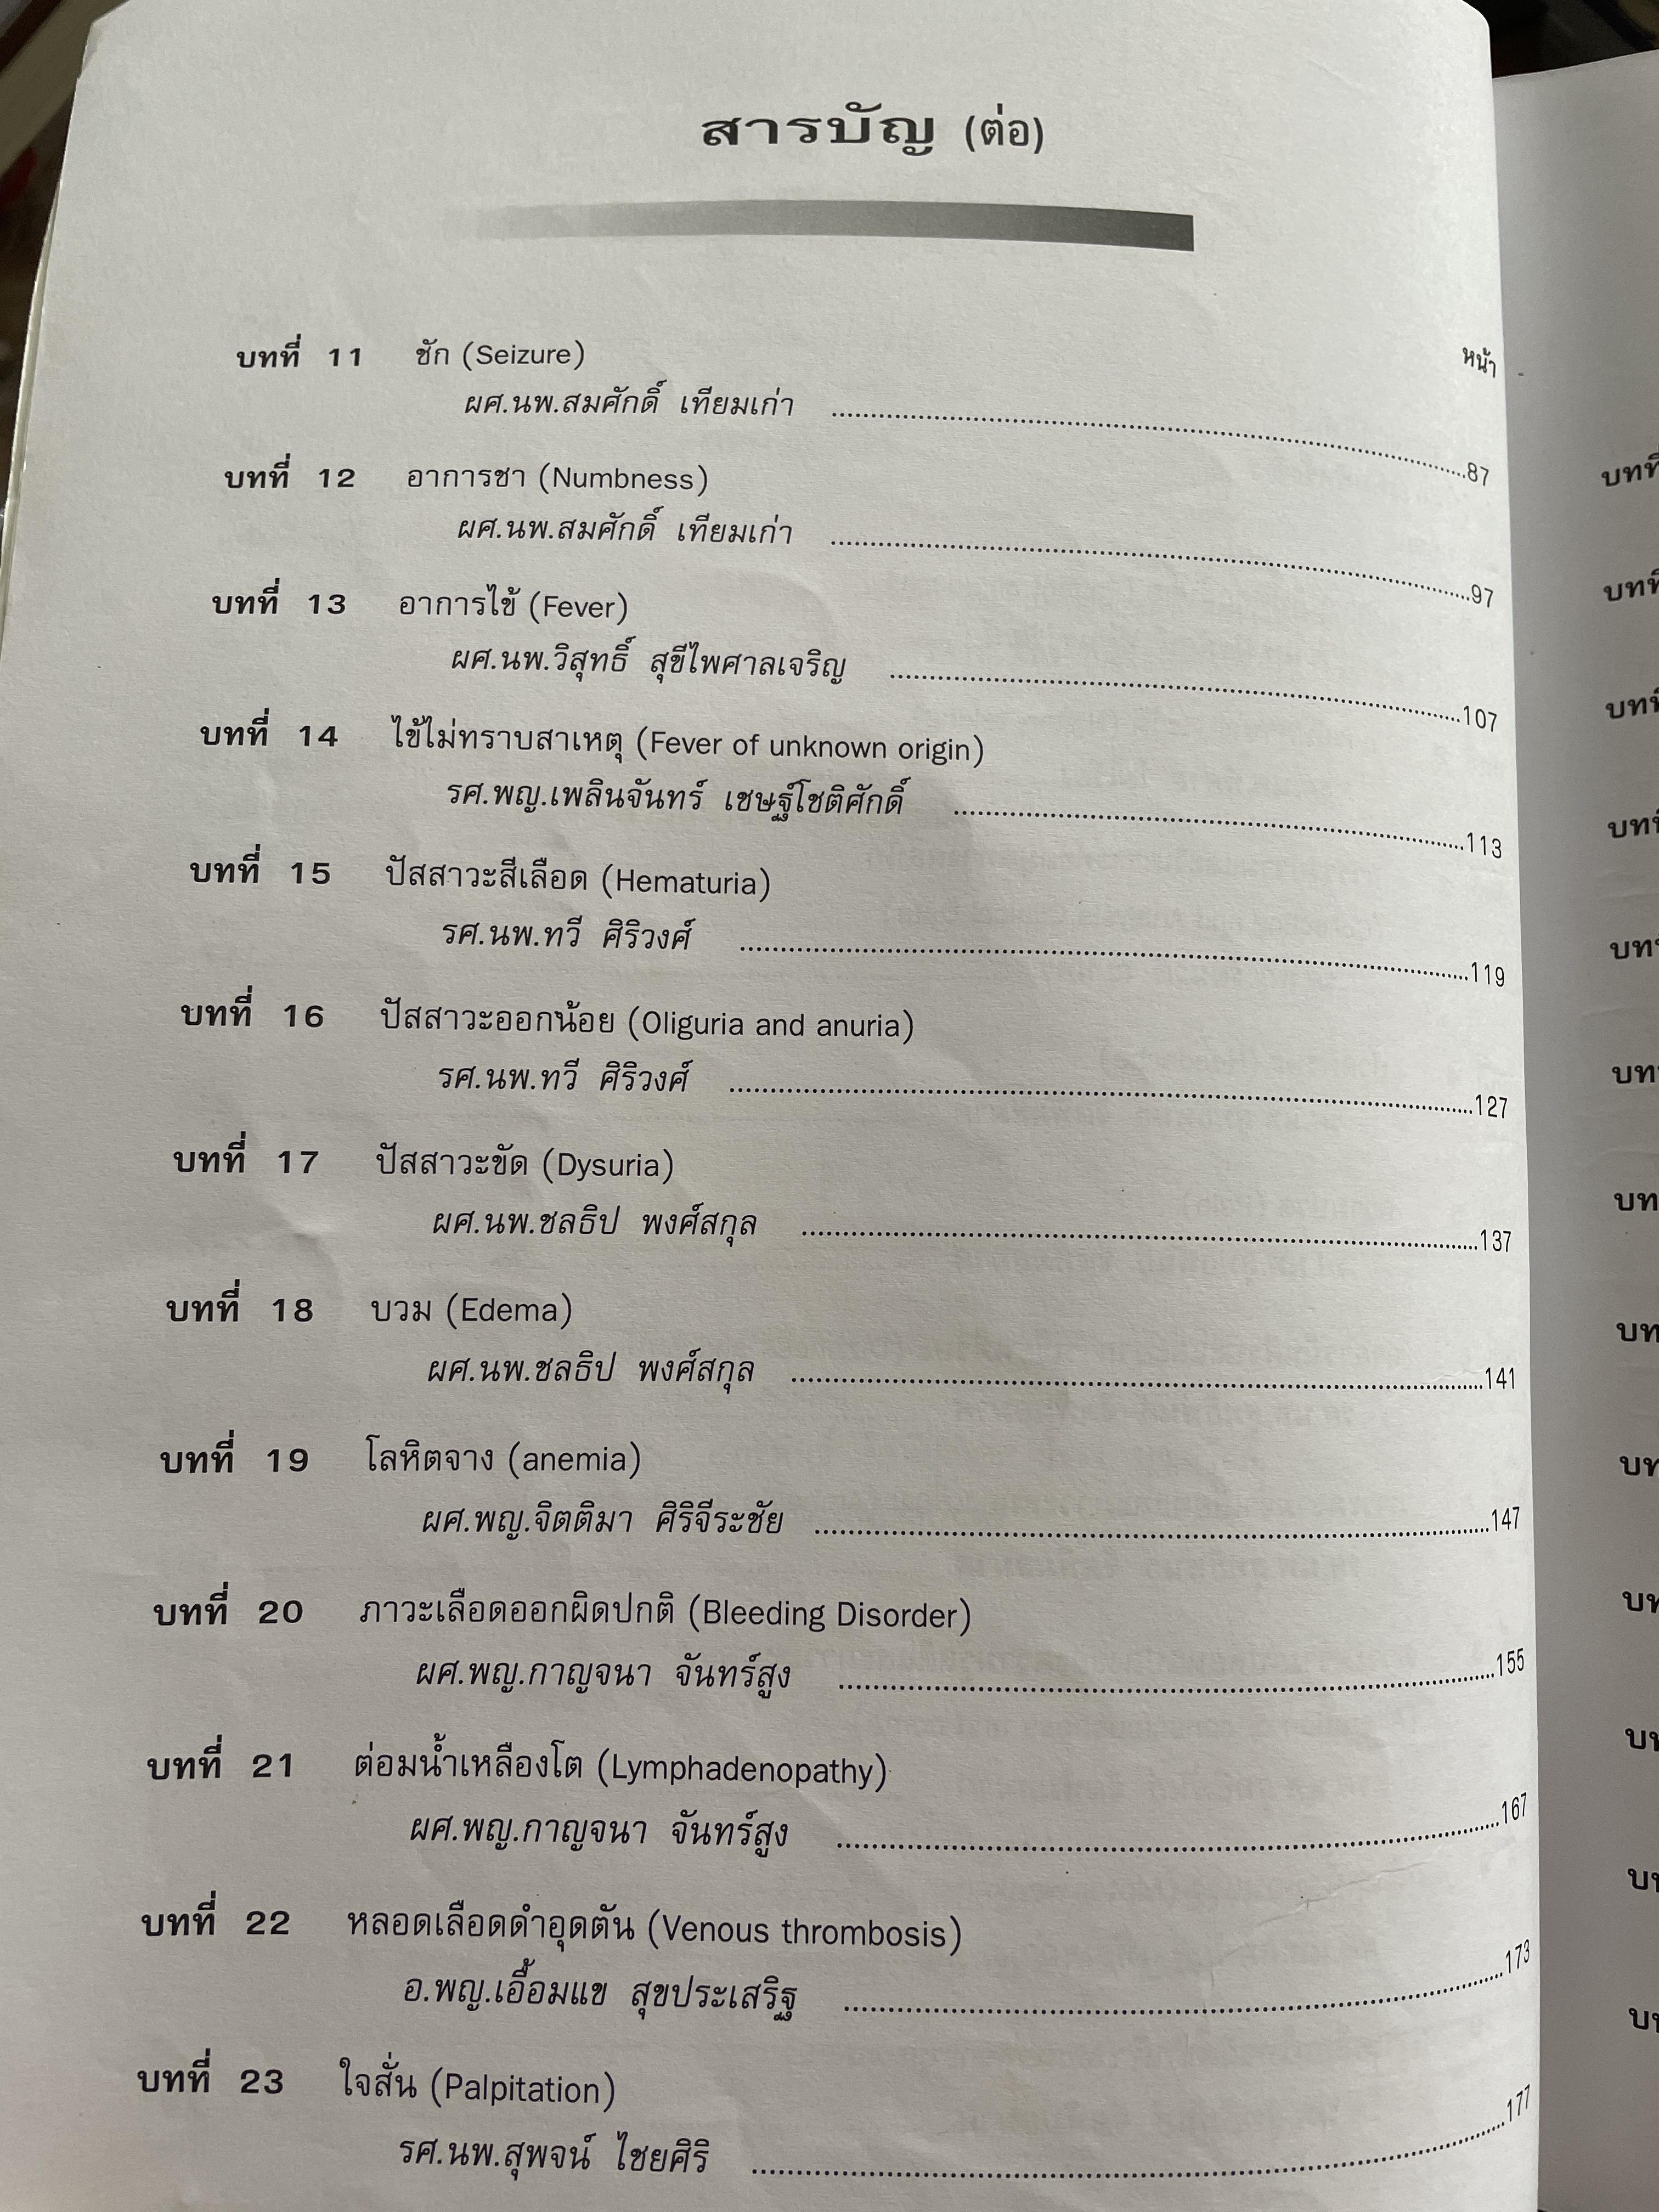 สารบัญ (ต่อ)
หน้า
บทที่ 11 ชัก (Seizure)
ผศ.นพ.สมศักดิ์ เทียมเก่า ..........87
บทที่ 12 อาการชา (Numbness)
ผศ.นพ.สมศักดิ์ เทียมเก่า ..........97
บทที่ 13 อาการไข้ (Fever)
ผศ.นพ.วิสุทธิ์ สุขีไพศาลเจริญ ..........107
บทที่ 14 ไข้ไม่ทราบสาเหตุ (Fever of unknown origin)
รศ.พญ.เพลินจันทร์ เชษฐ์โชติศักดิ์ ..........113
บทที่ 15 ปัสสาวะสีเลือด (Hematuria)
รศ.นพ.ทวี ศิริวงศ์ ..........119
บทที่ 16 ปัสสาวะออกน้อย (Oliguria and anuria)
รศ.นพ.ทวี ศิริวงศ์ ..........127
บทที่ 17 ปัสสาวะขัด (Dysuria)
ผศ.นพ.ชลธิป พงศ์สกุล ..........137
บทที่ 18 บวม (Edema)
ผศ.นพ.ชลธิป พงศ์สกุล ..........141
บทที่ 19 โลหิตจาง (anemia)
ผศ.พญ.จิตติมา ศิริจีระชัย ..........147
บทที่ 20 ภาวะเลือดออกผิดปกติ (Bleeding Disorder)
ผศ.พญ.กาญจนา จันทร์สูง ..........155
บทที่ 21 ต่อมน้ำเหลืองโต (Lymphadenopathy)
ผศ.พญ.กาญจนา จันทร์สูง ..........167
บทที่ 22 หลอดเลือดดำอุดตัน (Venous thrombosis)
อ.พญ.เอื้อมแข สุขประเสริฐ ..........173
บทที่ 23 ใจสั่น (Palpitation)
รศ.นพ.สุพจน์ ไชยศิริ ..........177